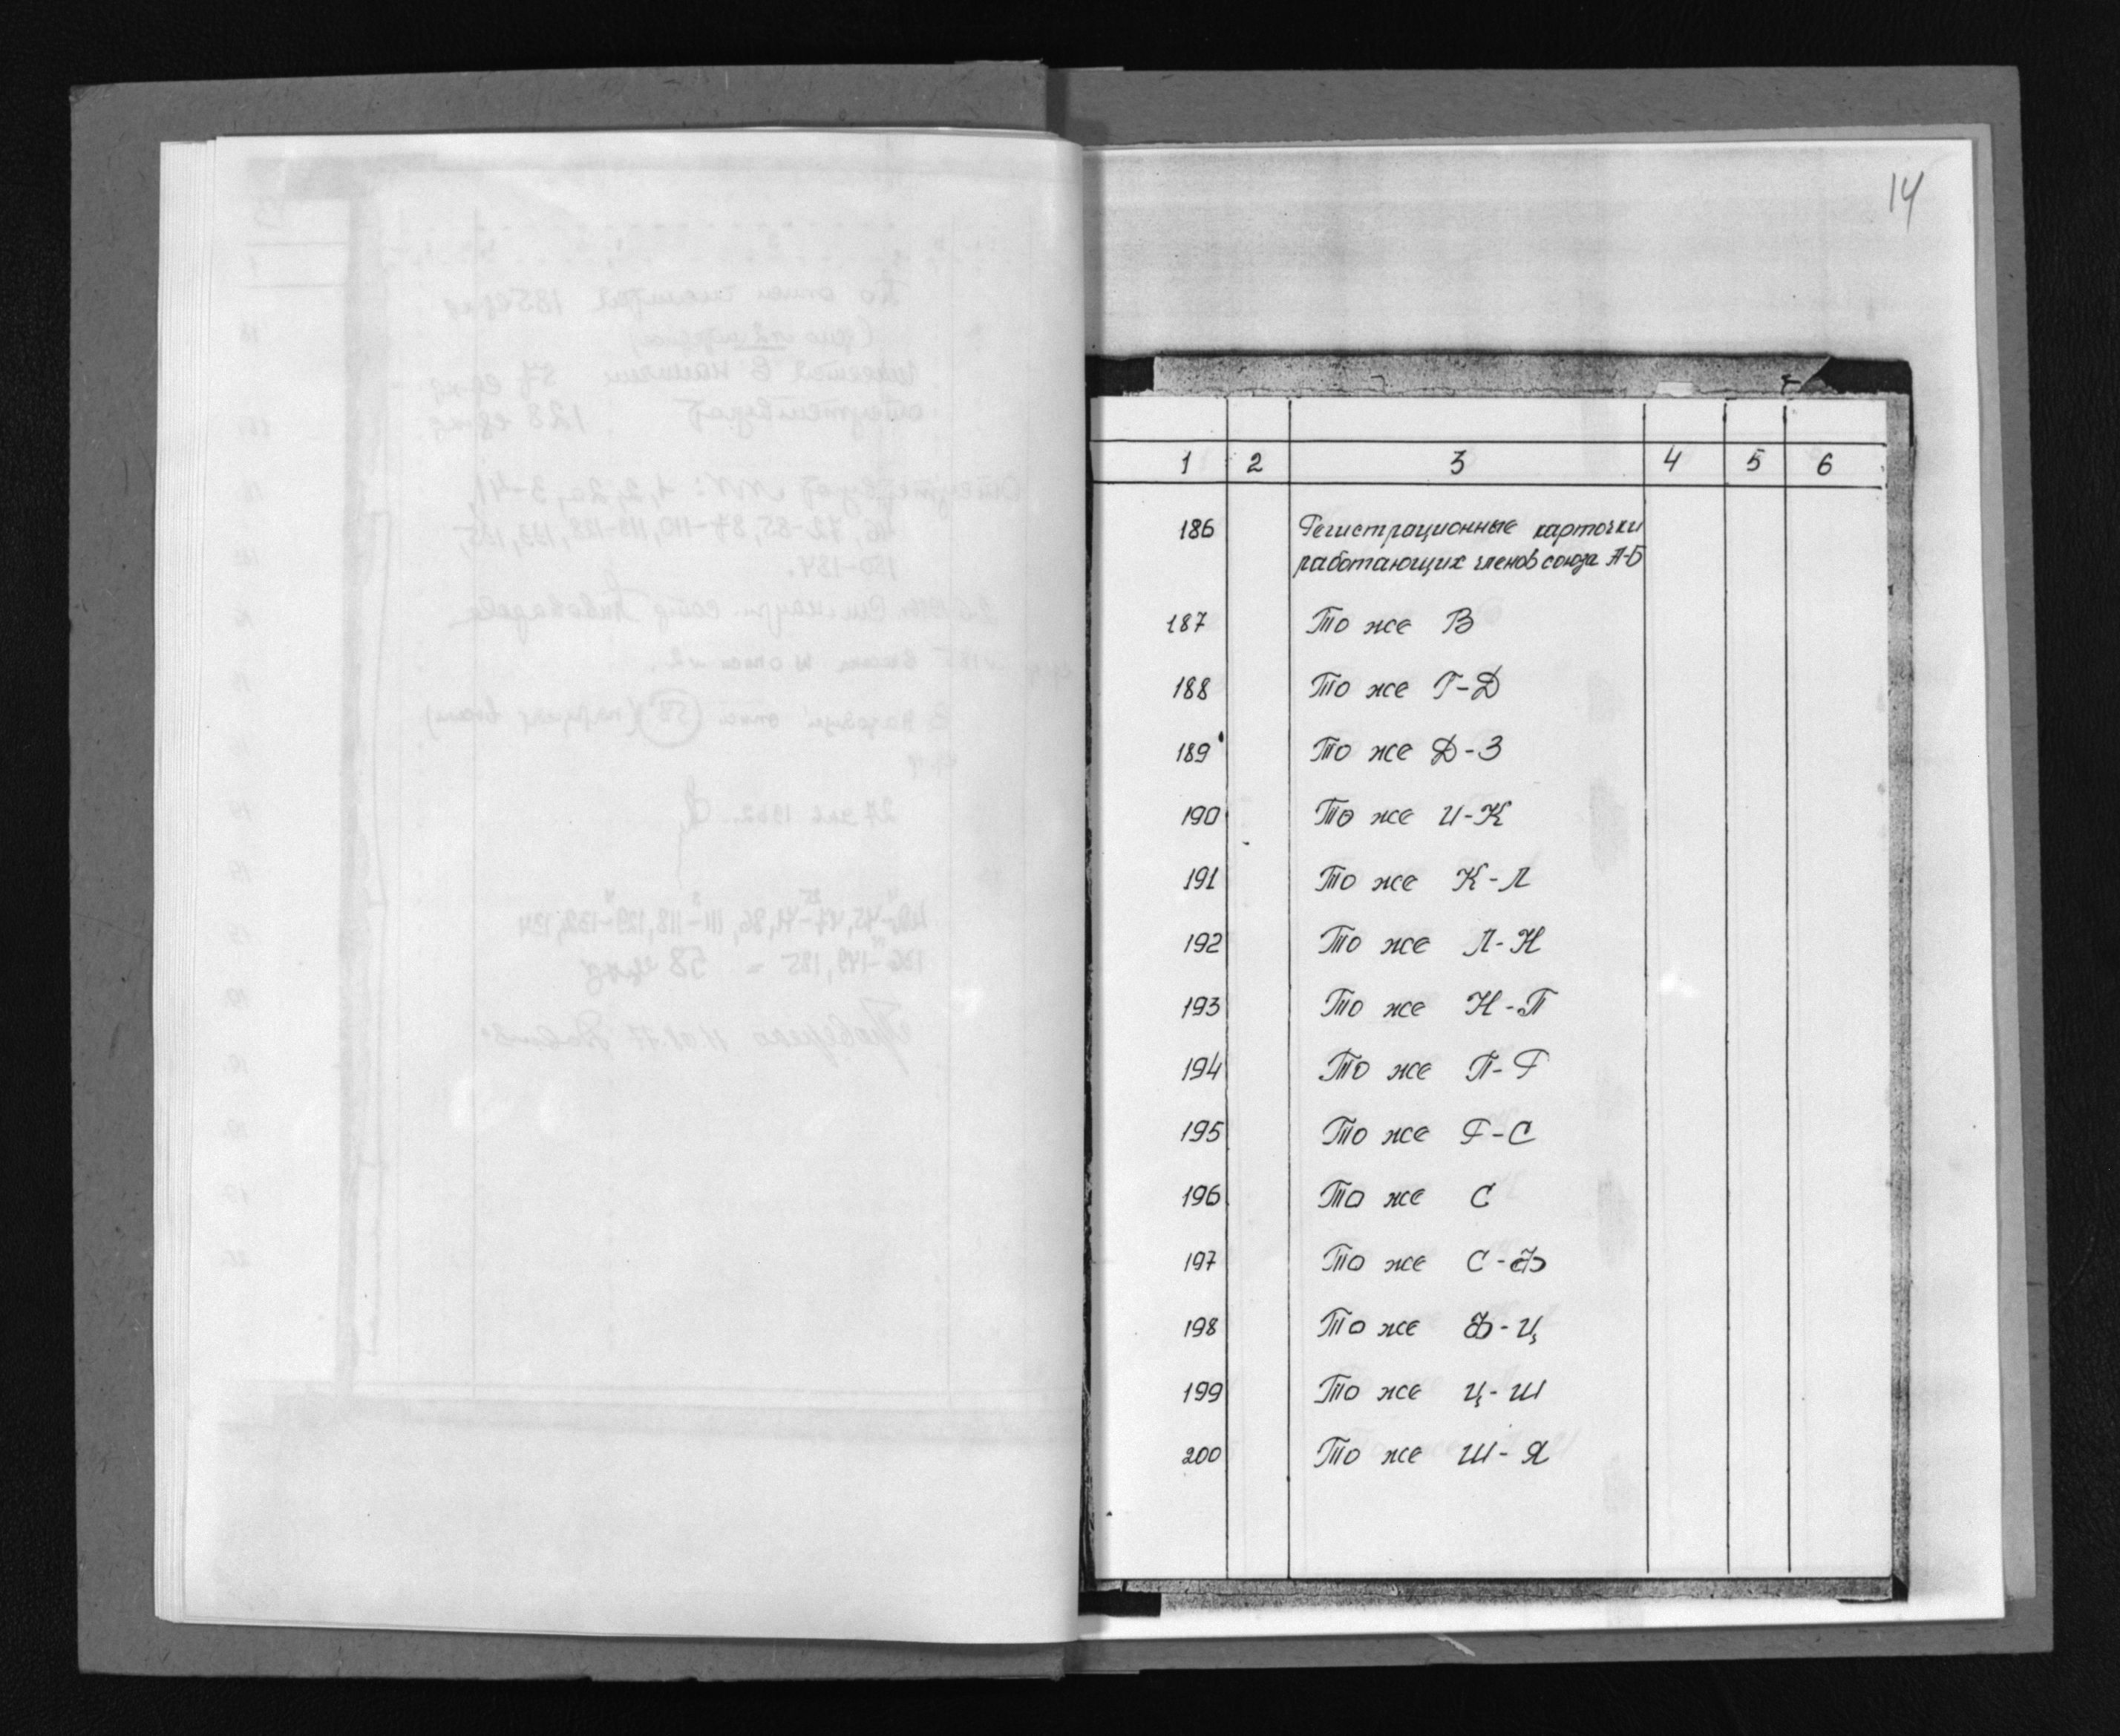 14
1 2 3 4 5 6
186 Регистрационные карточки
работающих членов союза А-Б
187 То же В
188 То же Г-Д
189 То же Д-З
190 То же И-К
191 То же К-Л
192 То же Л-Н
193 То же Н-П
194 То же П-Р
195 То же Р-С
196 То же С
197 То же С-Ф
198 То же Ф-Ц
199 То же Ц-Ш
200 То же Ш-Я